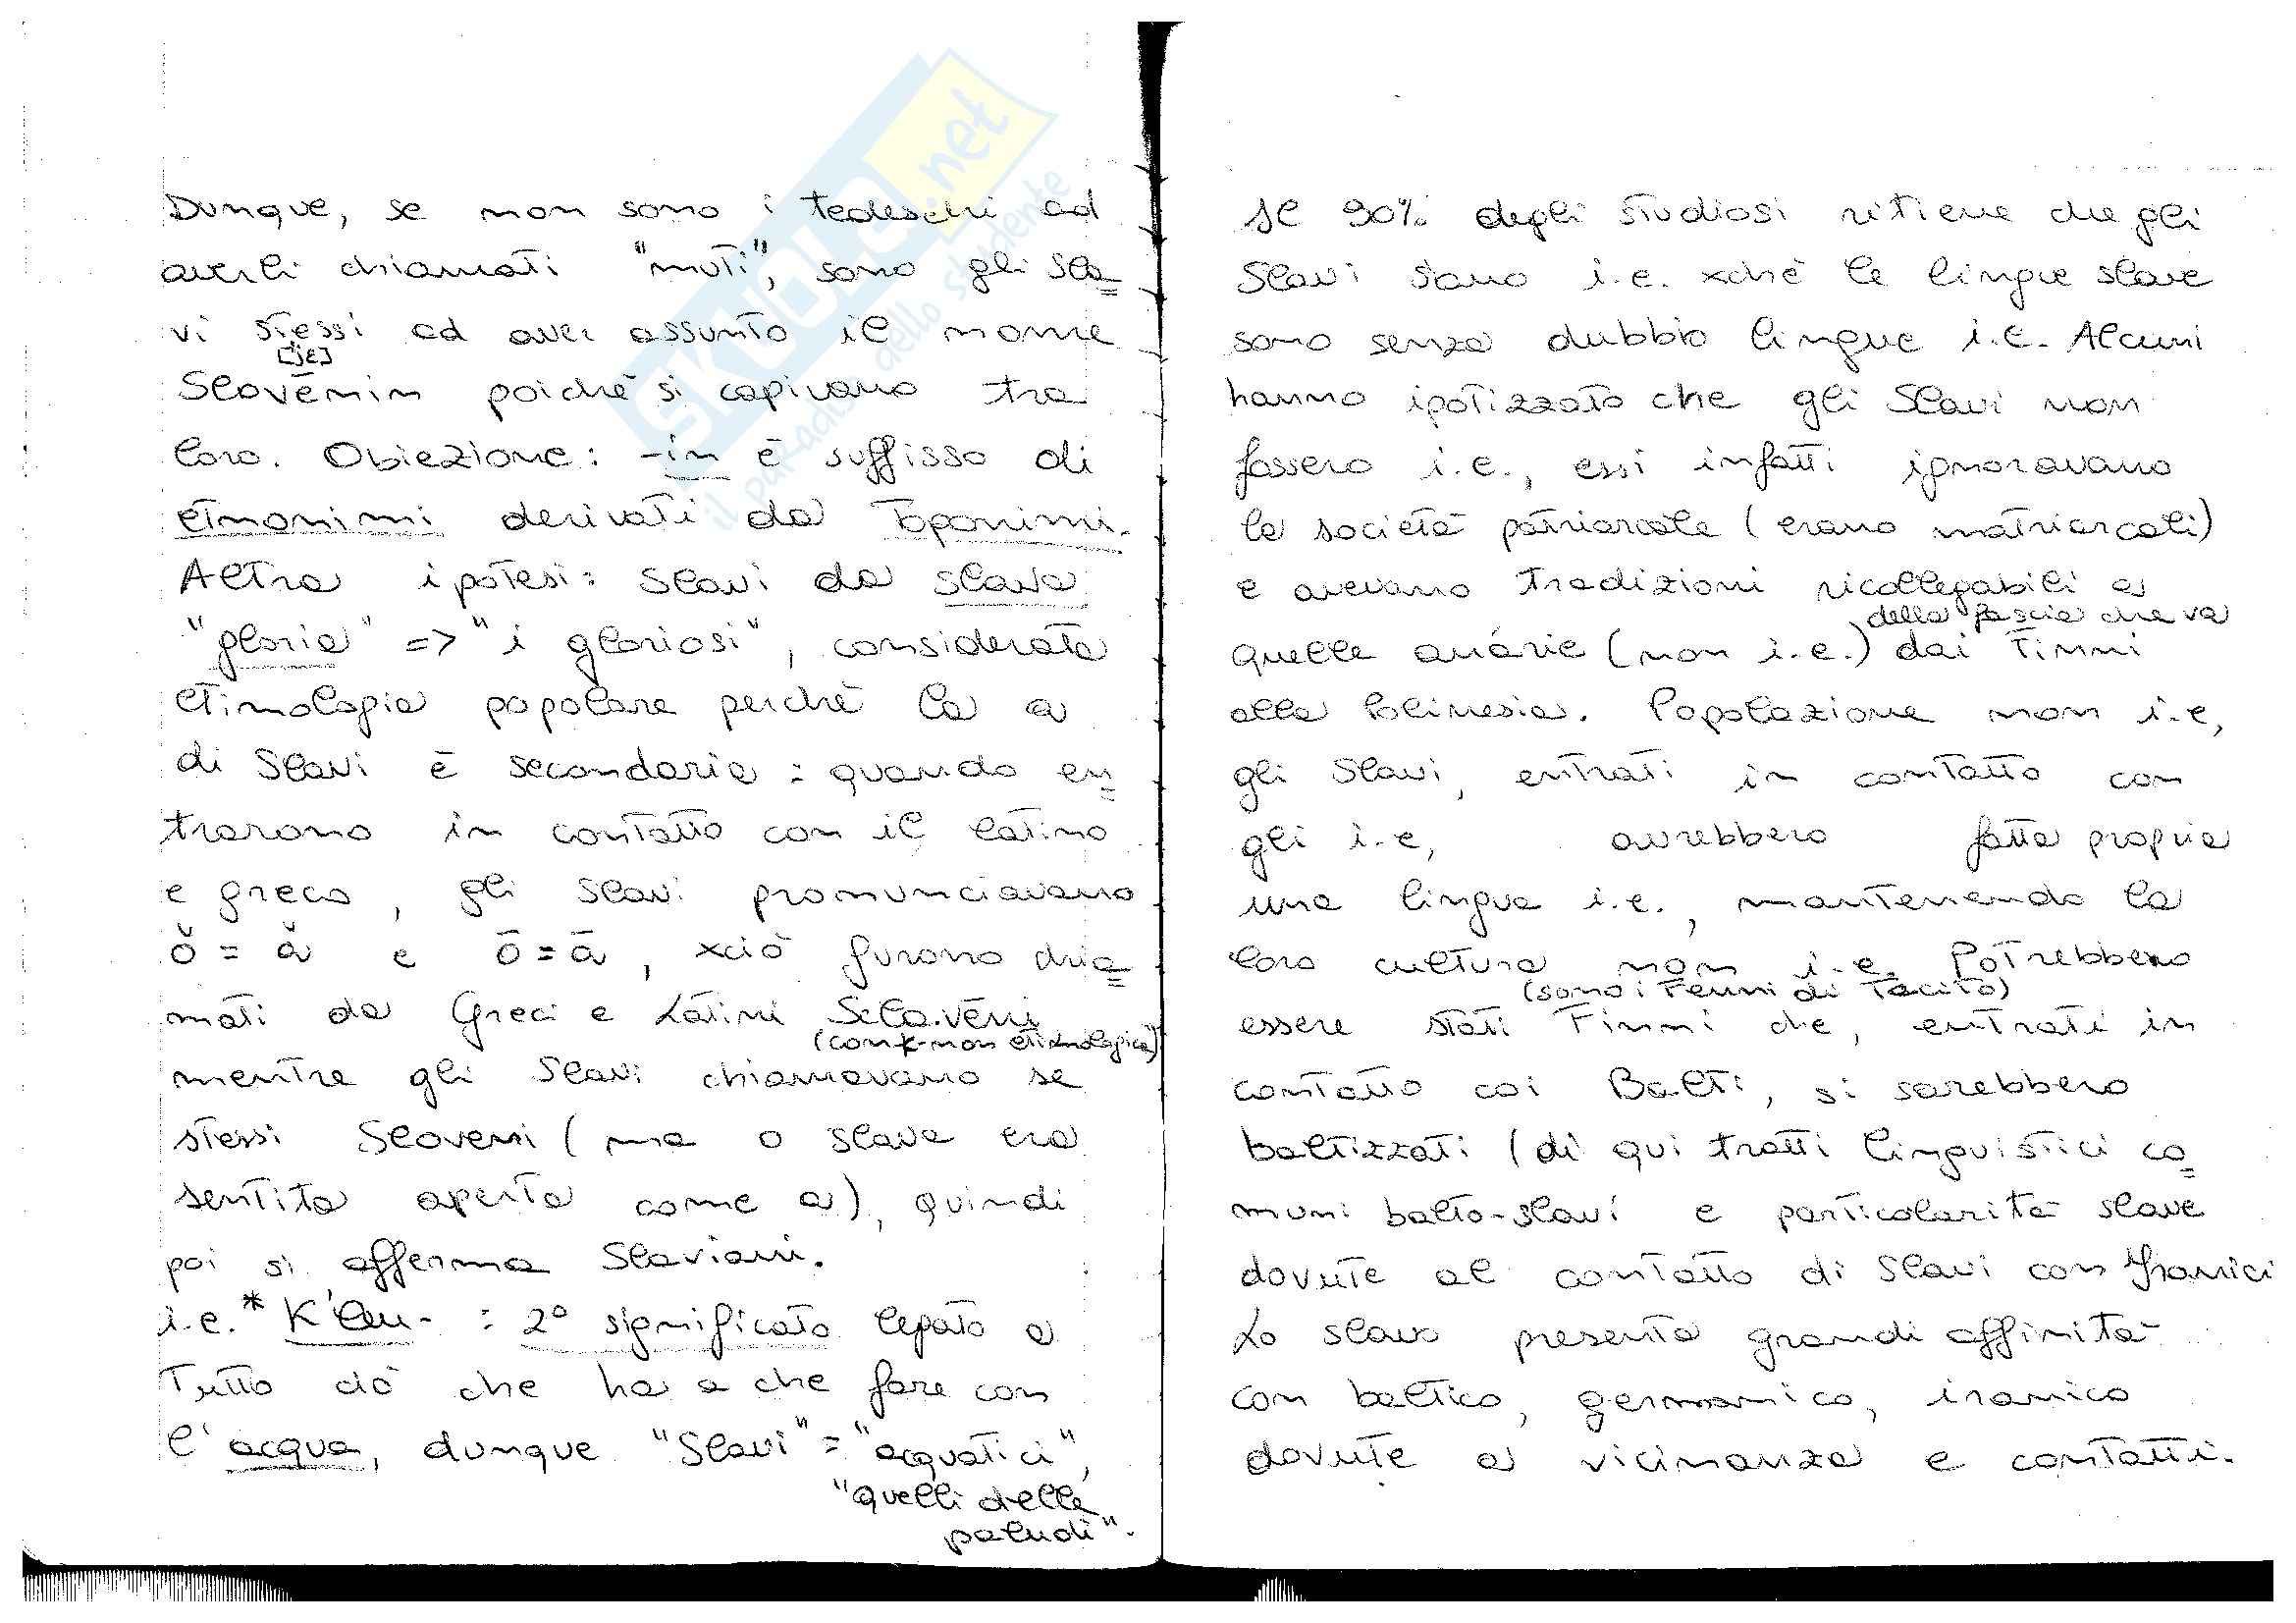 Dunque, se non sono i tedeschi ad
averli chiamati "muti", sono gli sla=
vi stessi ad aver assunto il nome
[jε]
Slovēnin poichè si capivano tra
loro. Obiezione: -in è suffisso di
etnonimi derivati da toponimi.
Altra ipotesi: Slavi da slava
"gloria" => "i gloriosi", considerata
etimologia popolare perchè la a
di Slavi è secondaria: quando en=
trarono in contatto con il latino
e greco, gli slavi pronunciavano
ŏ = ă e ō = ā, xciò furono chia=
mati da Greci e Latini Sclavēni
(con k non etimologica)
mentre gli Slavi chiamavano se
stessi Sloveni (ma o slava era
sentita aperta come a), quindi
poi si afferma Slaviani.
i.e. * K'leu- : 2° significato legato a
tutto ciò che ha a che fare con
l'acqua, dunque "Slavi" = "acquatici",
"quelli delle
paludi".
Il 90% degli studiosi ritiene che gli
Slavi siano i.e. xchè le lingue slave
sono senza dubbio lingue i.e. Alcuni
hanno ipotizzato che gli Slavi non
fossero i.e., essi infatti ignoravano
la società patriarcale (erano matriarcali)
e avevano tradizioni ricollegabili a
della fascia che va
quelle anárie (non i.e.) dai Finni
alla Polinesia. Popolazione non i.e,
gli Slavi, entrati in contatto con
gli i.e, avrebbero fatta propria
una lingua i.e., mantenendo la
loro cultura non i.e. Potrebbero
(sono i Fenni di Tacito)
essere stati Finni che, entrati in
contatto coi Balti, si sarebbero
baltizzati (di qui tratti linguistici co=
muni balto-slavi e particolarità slave
dovute al contatto di Slavi con Iranici
Lo slavo presenta grandi affinità
con baltico, germanico, iranico
dovute a vicinanza e contatti.
SKUOLA.net
il paradiso dello studente